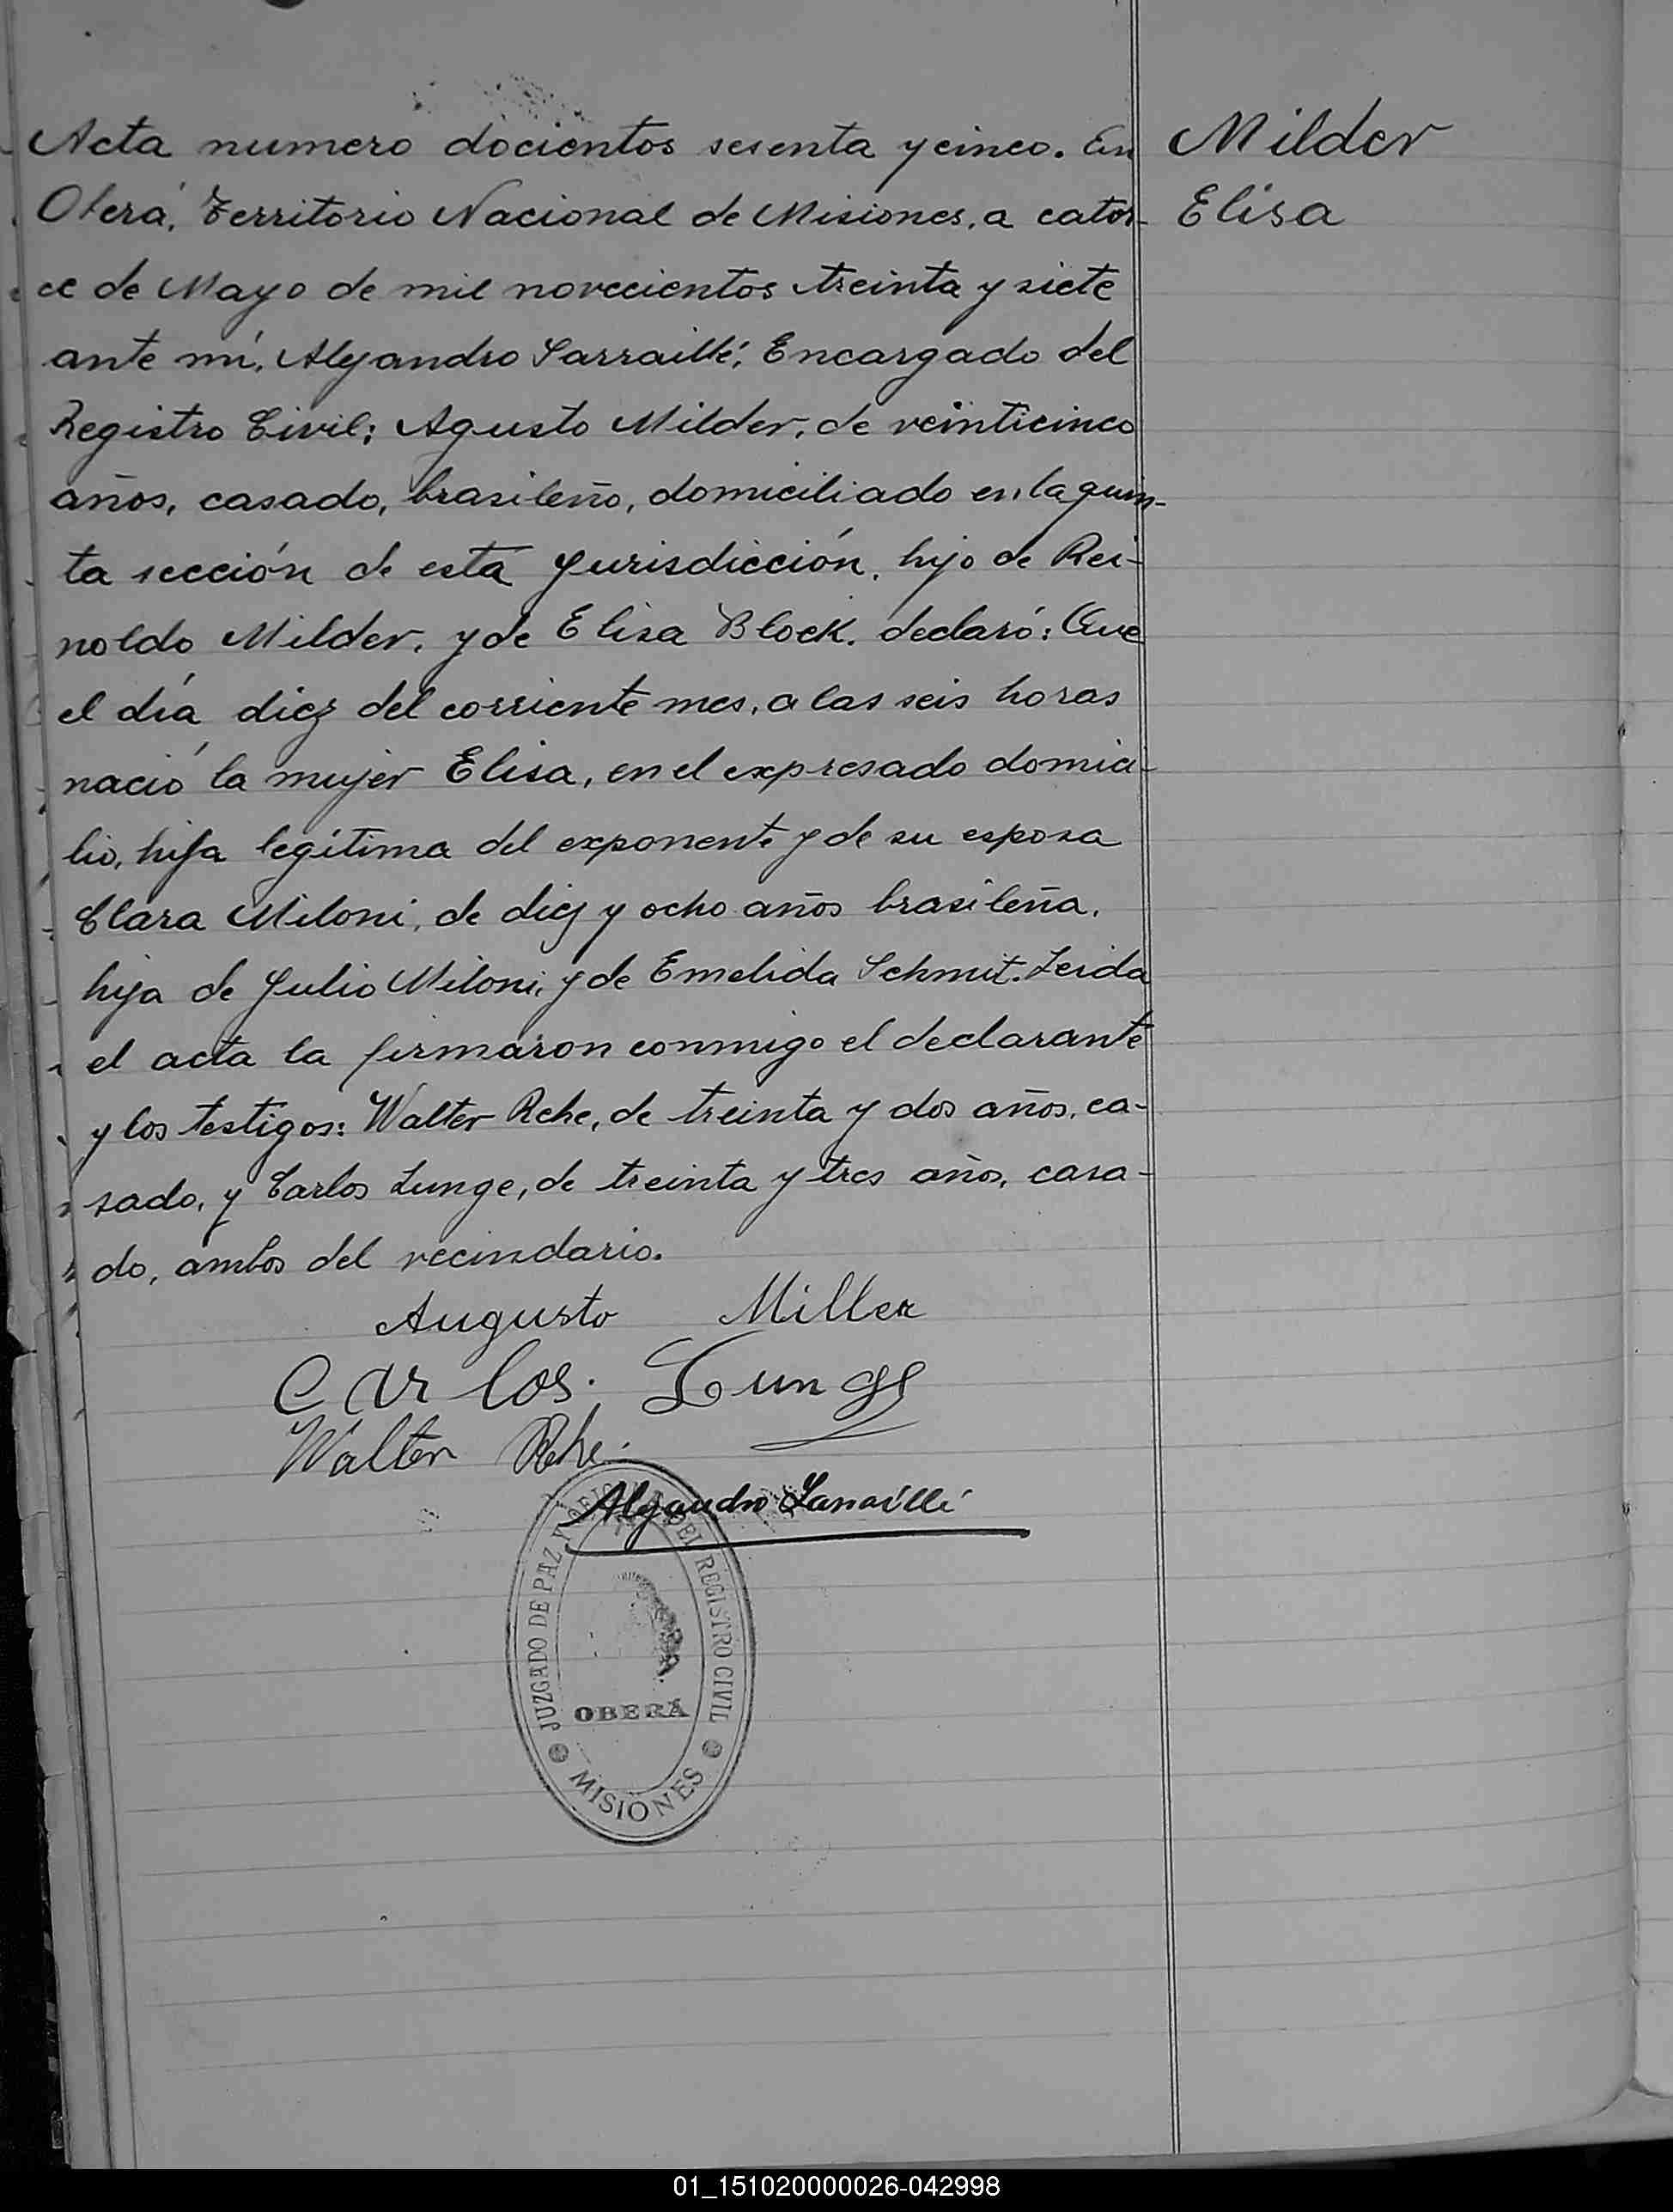 Acta numero docientos sesenta y cinco. En
Oberá, Territorio Nacional de Misiones, a cator-
ce de Mayo de mil novecientos treinta y siete
ante mí, Alejandro Sarraillé, Encargado del
Registro Civil; Agusto Milder, de veinticinco
años, casado, brasileño, domiciliado en la quin-
ta sección de esta Jurisdicción, hijo de Rei-
noldo Milder, y de Elisa Block. declaró: Que
el día diez del corriente mes, a las seis horas
nació la mujer Elisa, en el expresado domici-
lio, hija legítima del exponente y de su esposa
Clara Miloni, de diez y ocho años brasileña,
hija de Julio Miloni, y de Emelida Schmit. Leida
el acta la firmaron conmigo el declarante
y los testigos: Walter Rehe, de treinta y dos años, ca-
sado, y Carlos Lunge, de treinta y tres años, casa-
do, ambos del vecindario.
Augusto Miller
Carlos. Lunge
Walter Rehe.
Alejandro Sarraillé
JUZGADO DE PAZ Y OFICINA DEL REGISTRO CIVIL
OBERÁ
MISIONES
Milder
Elisa
01_151020000026-042998